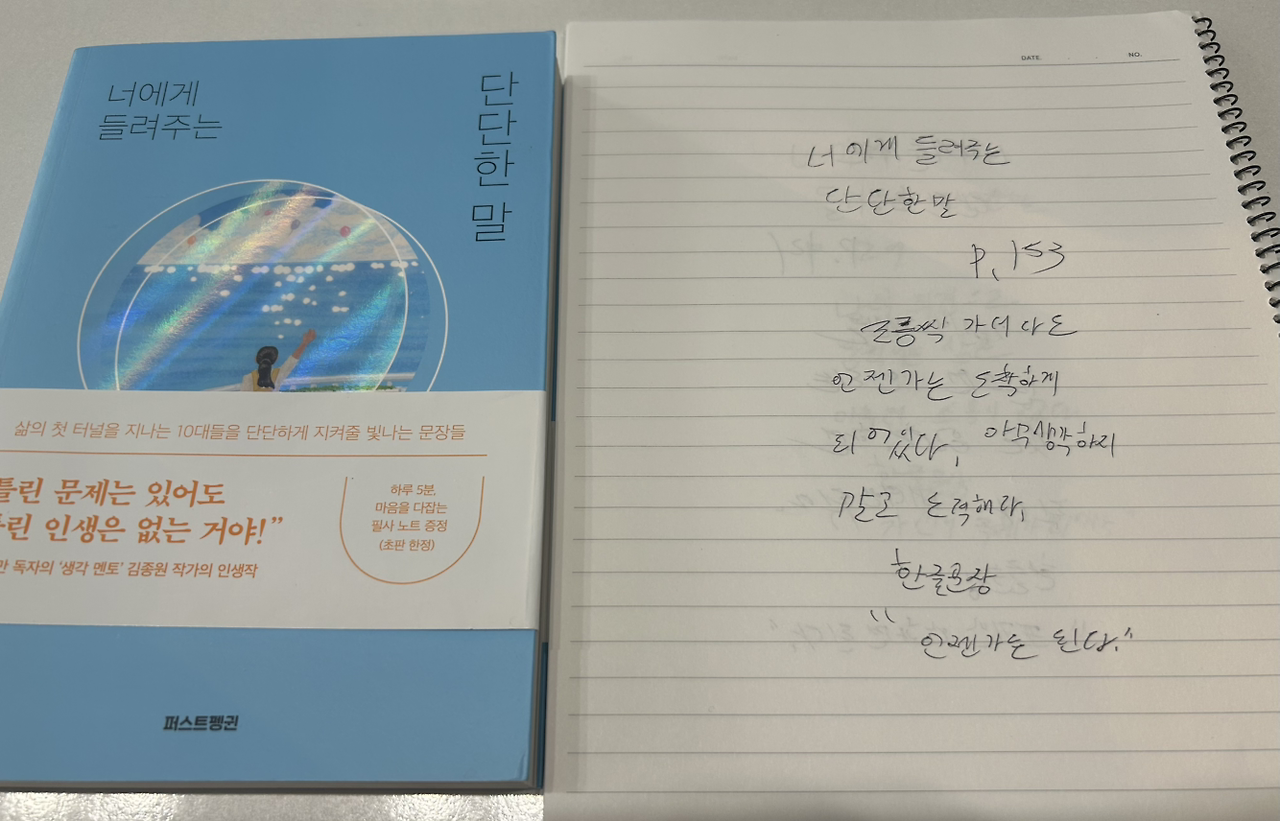 너에게
들려주는
단단한 말
삶의 첫 터널을 지나는 10대들을 단단하게 지켜줄 빛나는 문장들
틀린 문제는 있어도
린 인생은 없는 거야!”
만 독자의 ‘생각 멘토’ 김종원 작가의 인생작
하루 5분,
마음을 다잡는
필사 노트 증정
(초판 한정)
퍼스트펭귄
DATE. NO.
너에게 들려주는
단단한 말
P. 153
조금씩 가더라도
언젠가는 도착하게
되어있다. 아무생각하지
말고 노력해라.
한글문장
"언젠가는 된다."